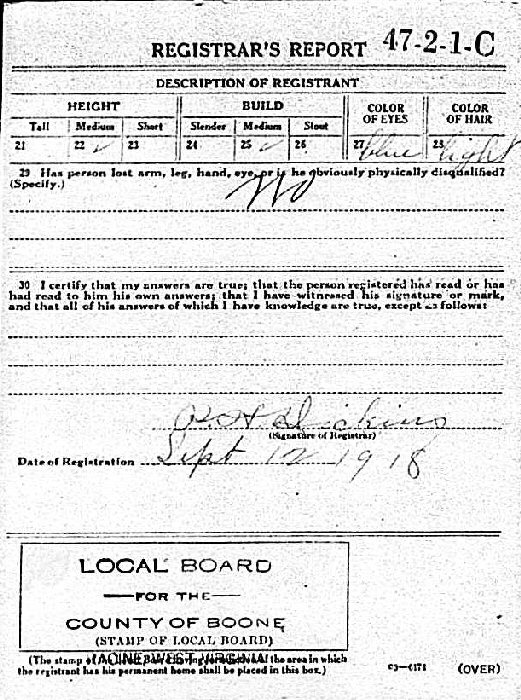 REGISTRAR'S REPORT 47-2-1-C
DESCRIPTION OF REGISTRANT
HEIGHT BUILD COLOR OF EYES COLOR OF HAIR
Tall Medium Short Slender Medium Stout
21 22 ✓ 23 24 25 ✓ 26 27 blue 28 light
29 Has person lost arm, leg, hand, eye, or is he obviously physically disqualified?
(Specify.) No
30 I certify that my answers are true; that the person registered has read or has
had read to him his own answers; that I have witnessed his signature or mark,
and that all of his answers of which I have knowledge are true, except as follows:
Dickins
(Signature of Registrar)
Date of Registration Sept 12 1918
LOCAL BOARD
FOR THE
COUNTY OF BOONE
(STAMP OF LOCAL BOARD)
WEST VIRGINIA
(The stamp of the Local Board having jurisdiction of the area in which
the registrant has his permanent home shall be placed in this box.)
03—6171 (OVER)